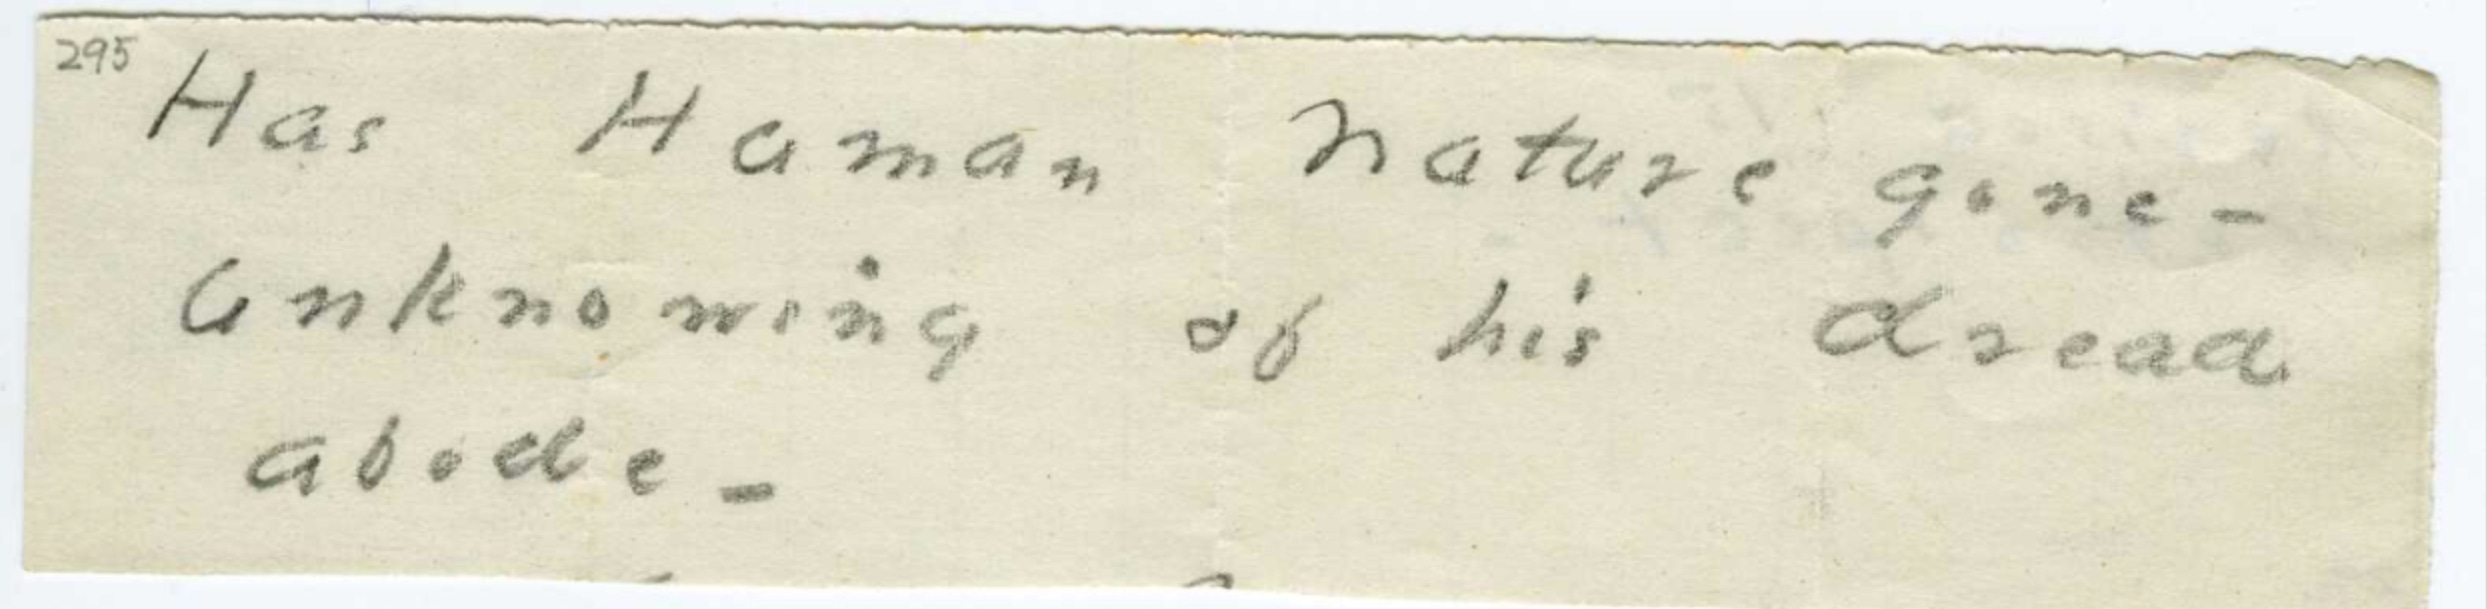 295
Has Human nature gone -
unknowing of his dread
abode -